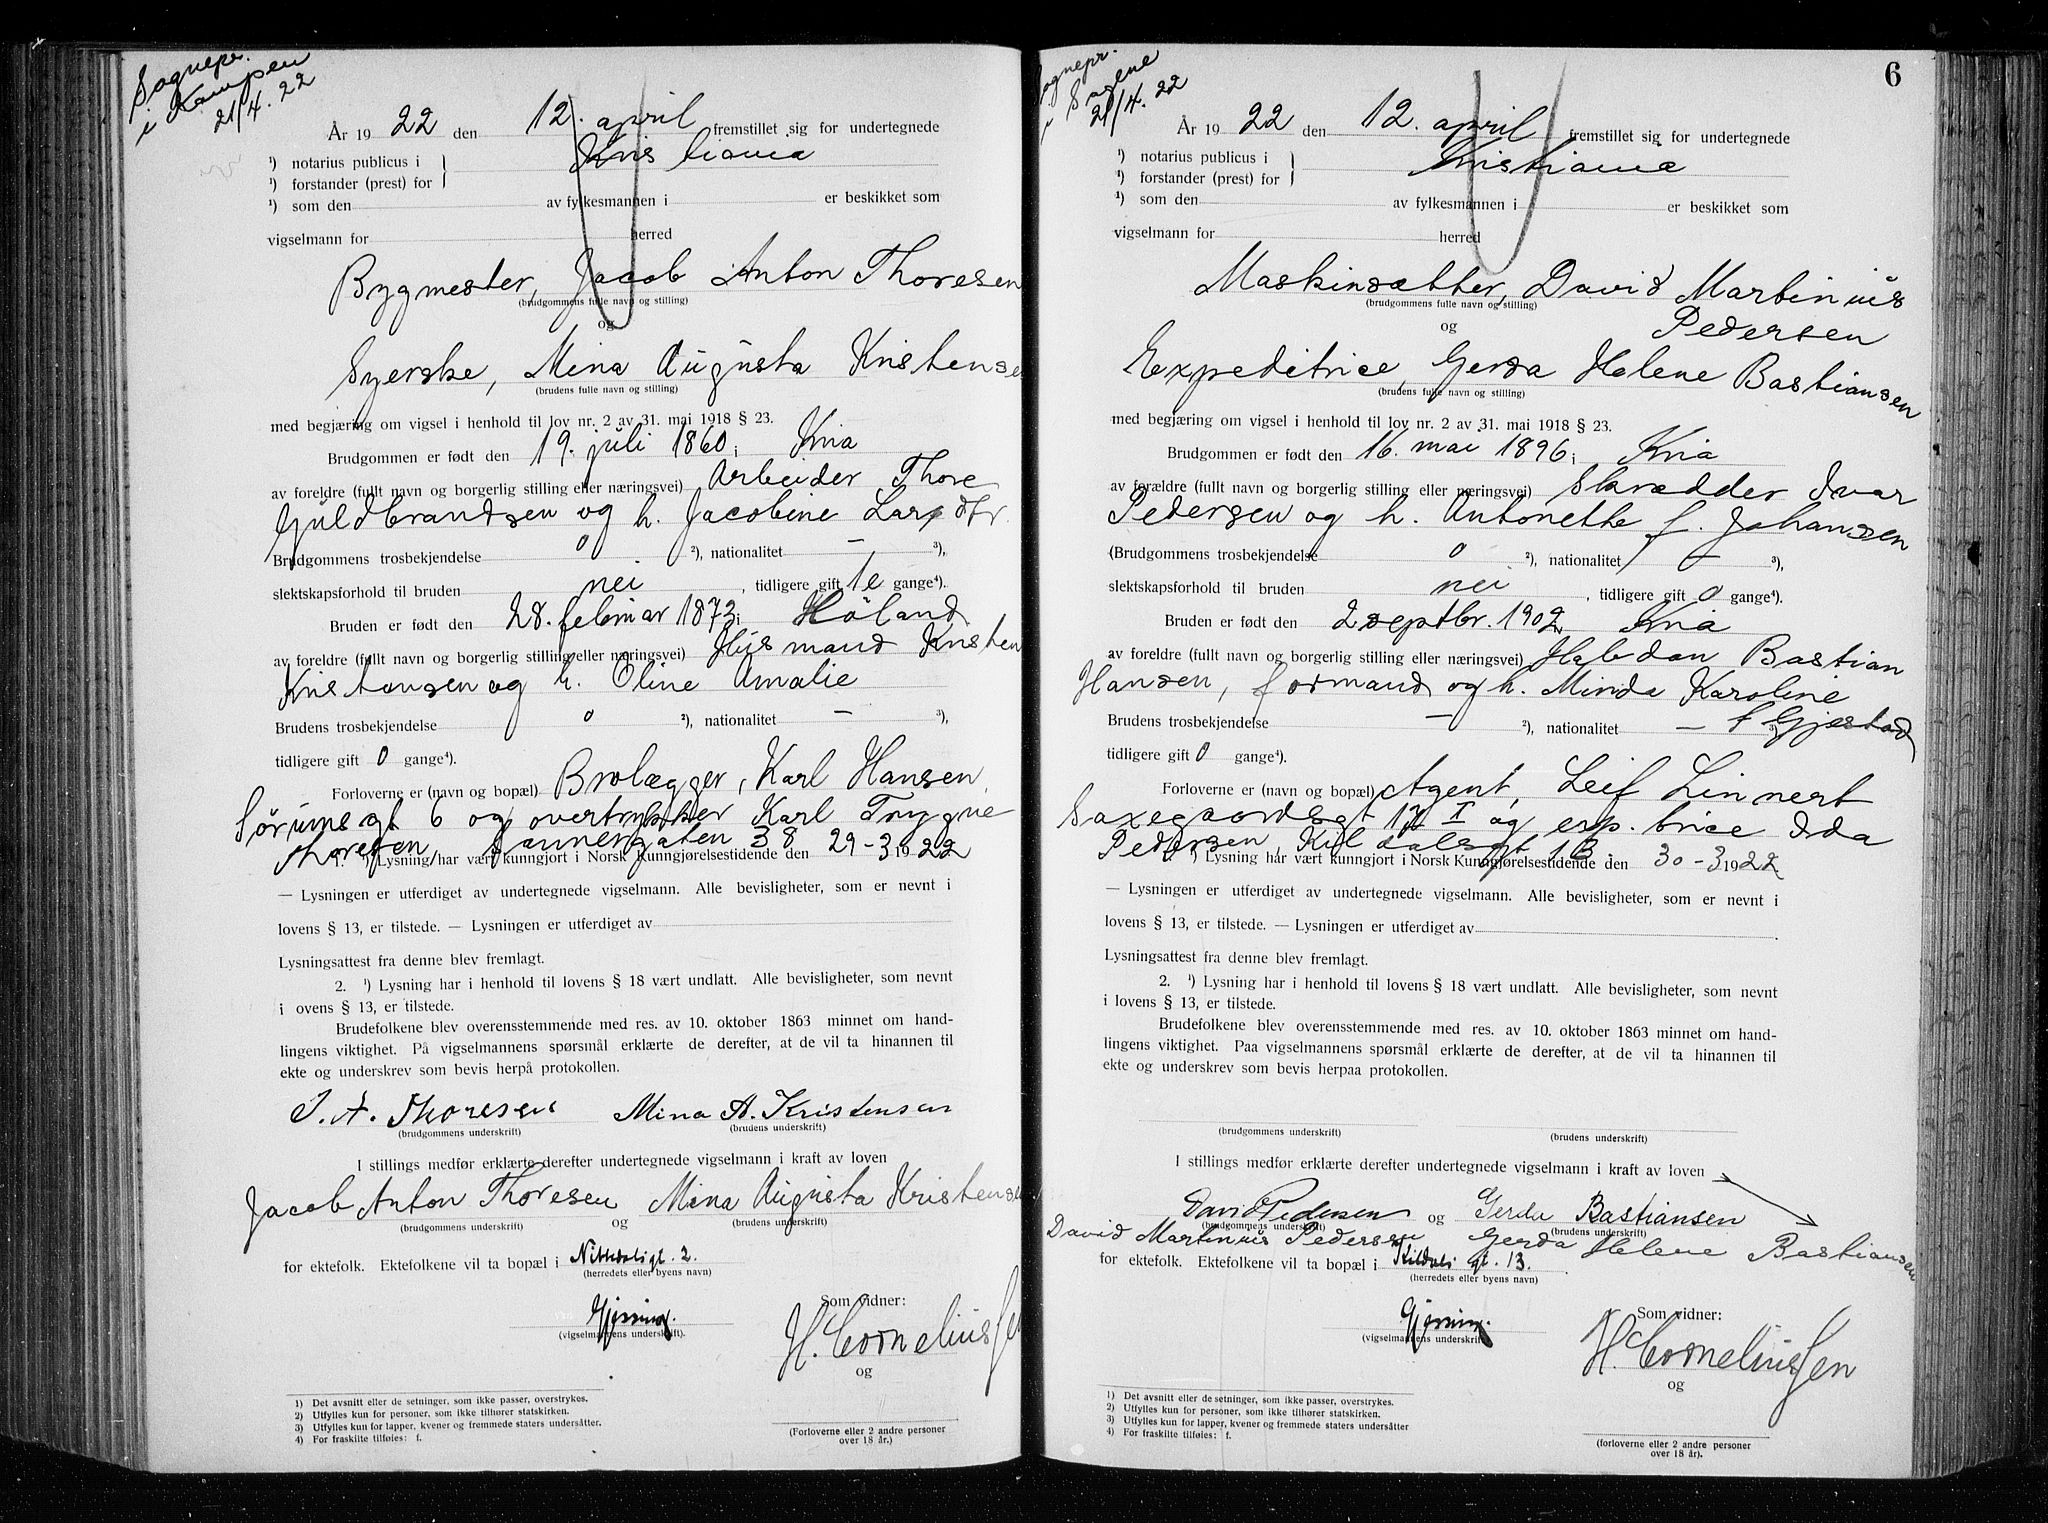 Sognepr.
i Kampen
21/4. 22
År 1922 den 12. april fremstillet sig for undertegnede
¹) notarius publicus i } Kristiania
¹) forstander (prest) for
¹) som den av fylkesmannen i er beskikket som
vigselmann for herred
Bygmester, Jacob Anton Thoresen
(brudgommens fulle navn og stilling)
og
Syerske, Mina Augusta Kristensen
(brudens fulle navn og stilling)
med begjæring om vigsel i henhold til lov nr. 2 av 31. mai 1918 § 23.
Brudgommen er født den 19. juli 1860; Kria
av foreldre (fullt navn og borgerlig stilling eller næringsvei) Arbeider Thore
Guldbrandsen og h. Jacobine Larsdtr.
Brudgommens trosbekjendelse 0 ²), nationalitet — ³),
slektskapsforhold til bruden nei, tidligere gift 1e gange⁴).
Bruden er født den 28. februar 1873; Høland
av foreldre (fullt navn og borgerlig stilling eller næringsvei) Husmand Kristen
Kristensen og h. Oline Amalie
Brudens trosbekjendelse 0 ²), nationalitet — ³),
tidligere gift 0 gange⁴).
Forloverne er (navn og bopæl) Brolægger, Karl Hansen,
Sørumsgt 6 og overtrykker Karl Trygve
Thoresen, Jannergaten 38
1. ¹) Lysning har vært kunngjort i Norsk Kunngjørelsestidende den 29-3 1922
— Lysningen er utferdiget av undertegnede vigselmann. Alle bevisligheter, som er nevnt i
lovens § 13, er tilstede. — Lysningen er utferdiget av
Lysningsattest fra denne blev fremlagt.
2. ¹) Lysning har i henhold til lovens § 18 vært undlatt. Alle bevisligheter, som nevnt
i ovens § 13, er tilstede.
Brudefolkene blev overensstemmende med res. av 10. oktober 1863 minnet om hand-
lingens viktighet. På vigselmannens spørsmål erklærte de derefter, at de vil ta hinannen til
ekte og underskrev som bevis herpå protokollen.
J. A. Thoresen Mina A. Kristensen
(brudgommens underskrift) (brudens underskrift)
I stillings medfør erklærte derefter undertegnede vigselmann i kraft av loven
Jacob Anton Thoresen og Mina Augusta Kristensen
(brudgommens underskrift) (brudens underskrift)
for ektefolk. Ektefolkene vil ta bopæl i Nittedalsgt. 2.
(herredets eller byens navn)
Som vidner:
Gjersing.
(vigselmannens underskrift).
H. Corneliussen
og
¹) Det avsnitt eller de setninger, som ikke passer, overstrykes.
²) Utfylles kun for personer, som ikke tilhører statskirken.
³) Utfylles kun for lapper, kvener og fremmede staters undersåtter.
⁴) For fraskilte tilføies: f.
(Forloverne eller 2 andre personer
over 18 år.)
6
Sognepr.
i Sagene
21/4. 22
År 1922 den 12. april fremstillet sig for undertegnede
¹) notarius publicus i } Kristiania
¹) forstander (prest) for
¹) som den av fylkesmannen i er beskikket som
vigselmann for herred
Maskinsætter, David Martinius
Pedersen
(brudgommens fulle navn og stilling)
og
Expeditrice, Gerda Helene Bastiansen
(brudens fulle navn og stilling)
med begjæring om vigsel i henhold til lov nr. 2 av 31. mai 1918 § 23.
Brudgommen er født den 16. mai 1896; Kria
av forældre (fullt navn og borgerlig stilling eller næringsvei) Skrædder Ivar
Pedersen og h. Antonette f. Johansen
(Brudgommens trosbekjendelse 0 ²), nationalitet — ³),
slektskapsforhold til bruden nei, tidligere gift 0 gange⁴).
Bruden er født den 2 septbr. 1902 Kria
av foreldre (fullt navn og borgerlig stilling eller næringsvei) Halvdan Bastian
Hansen, formand og h. Minda Karoline
f Gjestad
Brudens trosbekjendelse — ²), nationalitet — ³),
tidligere gift 0 gange⁴).
Forloverne er (navn og bopæl) Agent, Leif Linnert
Saxegaardsgt 12 I og exp. trice Ida
Pedersen, Kildalsgt 13
1. ¹) Lysning har vært kunngjort i Norsk Kunngjørelsestidende den 30-3 1922.
— Lysningen er utferdiget av undertegnede vigselmann. Alle bevisligheter, som er nevnt i
lovens § 13, er tilstede. — Lysningen er utferdiget av
Lysningsattest fra denne blev fremlagt.
2. ¹) Lysning har i henhold til lovens § 18 vært undlatt. Alle bevisligheter, som nevnt
i lovens § 13, er tilstede.
Brudefolkene blev overensstemmende med res. av 10. oktober 1863 minnet om hand-
lingens viktighet. Paa vigselmannens spørsmål erklærte de derefter, at de vil ta hinannen til
ekte og underskrev som bevis herpaa protokollen.
(brudgommens underskrift) (brudens underskrift)
I stillings medfør erklærte derefter undertegnede vigselmann i kraft av loven
David Pedersen og Gerda Bastiansen
(brudgommens underskrift) (brudens underskrift)
David Martinius Pedersen Gerda Helene Bastiansen
for ektefolk. Ektefolkene vil ta bopæl i Kildals gt. 13.
(herredets eller byens navn)
Som vidner:
Gjersing.
(vigselmannens underskrift)
H. Corneliussen
og
¹) Det avsnitt eller de setninger, som ikke passer, overstrykes.
²) Utfylles kun for personer, som ikke tilhører statskirken.
³) Utfylles kun for lapper, kvener og fremmede staters undersåtter
⁴) For fraskilte tilføies: f.
(forloverne eller 2 andre personer
over 18 år).